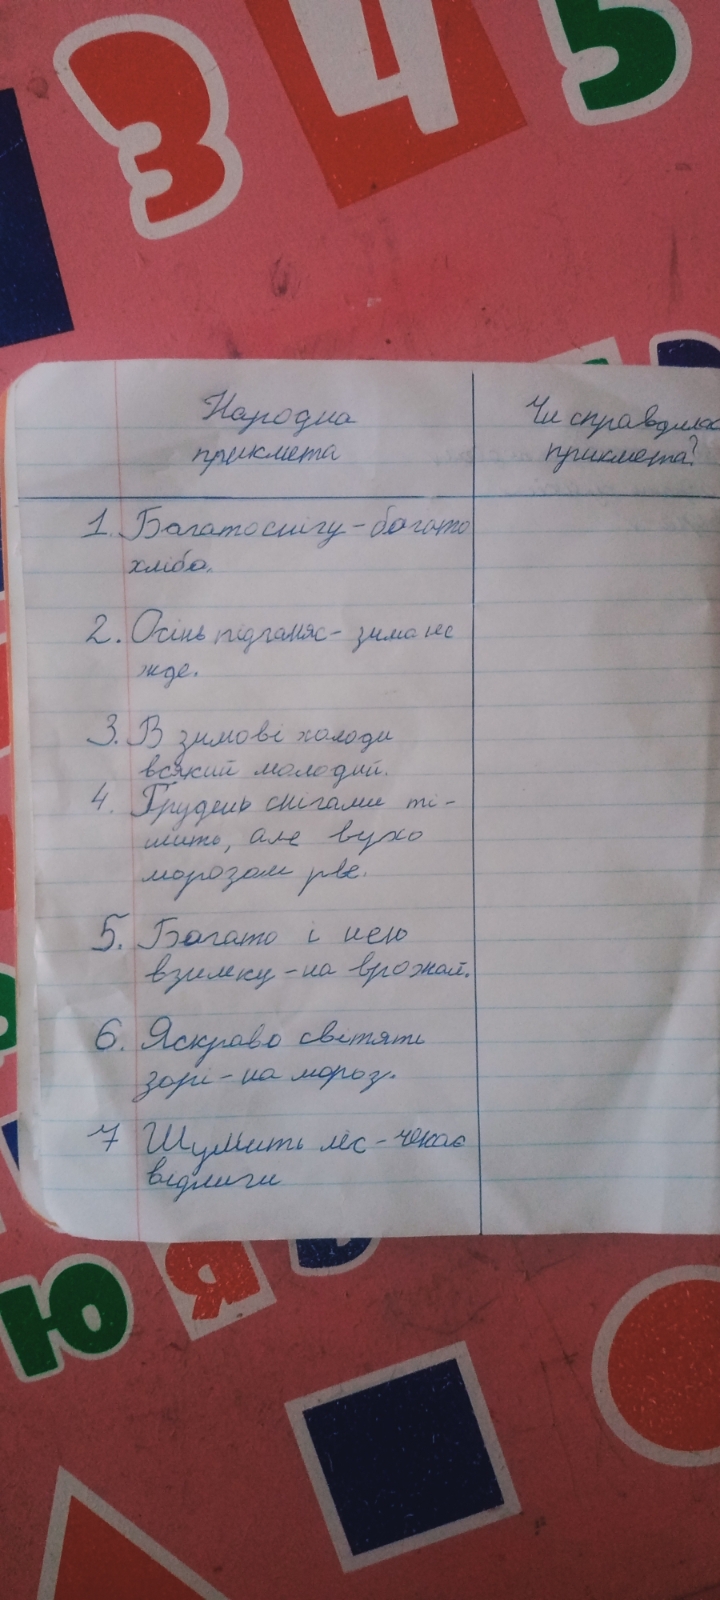 З Ч 5
Народна
прикмета
Чи справдилас
прикмета?
1. Багато снігу - багато
хліба.
2. Осінь підганяє - зима не
жде.
3. В зимові холоди
всякий молодий.
4. Грудень снігами ті-
шить, але вухо
морозом рве.
5. Багато інею
взимку - на врожай.
6. Яскраво світять
зорі - на мороз.
7 Шумить ліс - чекає
відлиги
Ю Я